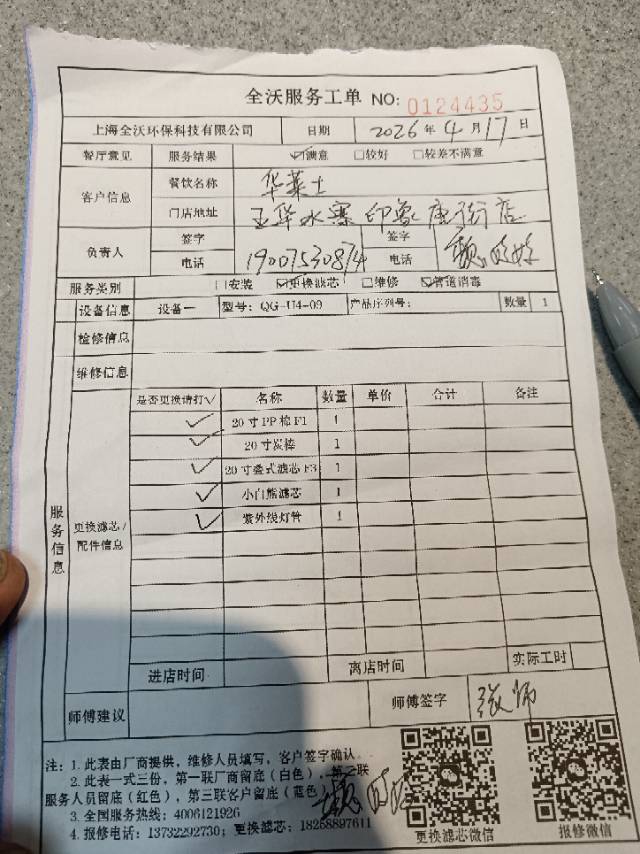 全沃服务工单 NO: 0124435
上海全沃环保科技有限公司 日期 2026年4月17日
餐厅意见 服务结果 ☑满意 □较好 □较差不满意
客户信息 餐饮名称 华莱士
门店地址 玉华水寨印象唐街店
负责人 签字 签字
电话 19007530874 电话
服务类别 □安装 ☑更换滤芯 □维修 ☑管道消毒
设备信息 设备一 型号: QG-U4-09 产品序列号: 数量 1
检修信息
维修信息
服务信息
更换滤芯/配件信息
是否更换请打✓ 名称 数量 单价 合计 备注
✓ 20寸PP棉F1 1
✓ 20寸炭棒 1
✓ 20寸叠式滤芯F3 1
✓ 小白熊滤芯 1
✓ 紫外线灯管 1
进店时间 离店时间 实际工时
师傅建议 师傅签字 张师
注: 1. 此表由厂商提供，维修人员填写，客户签字确认。
2. 此表一式三份，第一联厂商留底（白色），第二联
服务人员留底（红色），第三联客户留底（蓝色）
3. 全国服务热线: 4006121926
4. 报修电话: 13732292730; 更换滤芯: 18268897611
更换滤芯微信 报修微信